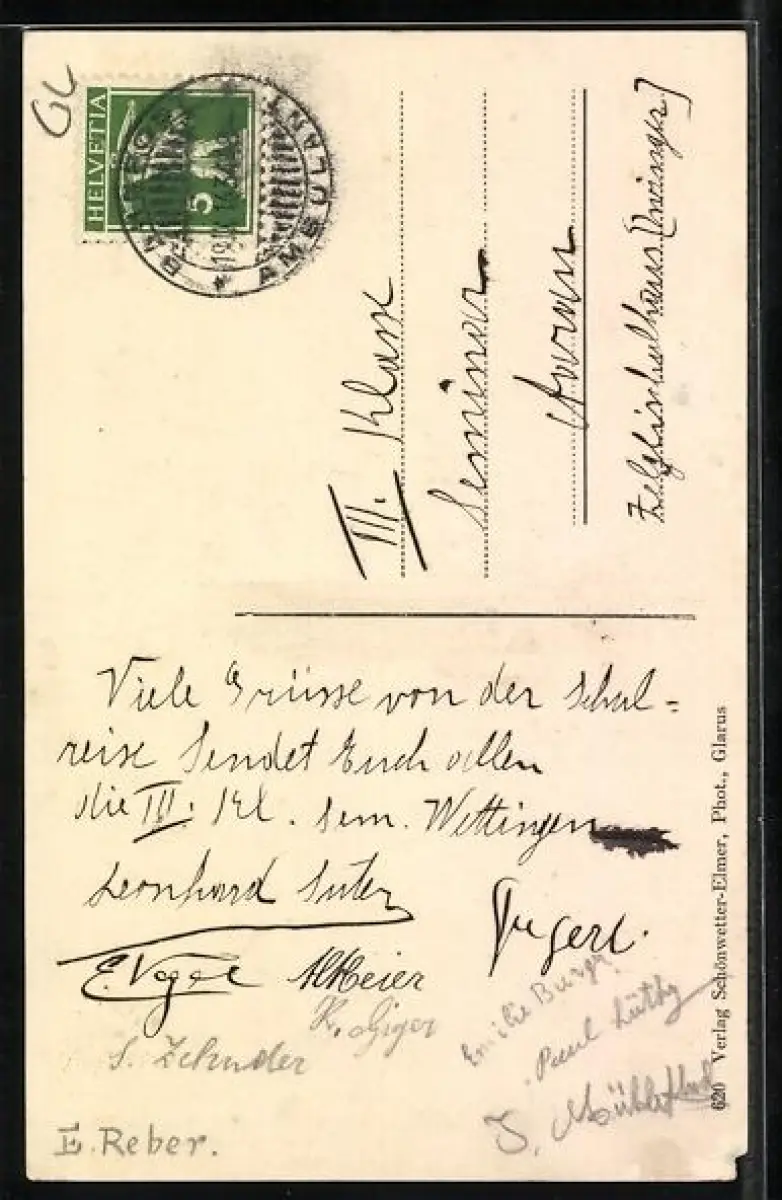 GL
HELVETIA
5
AMBULANT
III. Klasse
Seminar
Aarau
Zelglischulhaus
Viele Grüsse von der Schul=
reise sendet Euch allen
die III. Kl. Sem. Wettingen
Leonhard Suter
E. Vogel A. Meier
K. Giger
Emilie Burger
S. Zehnder
Paul Lüthy
E. Reber.
620 Verlag Schönwetter-Elmer, Phot., Glarus